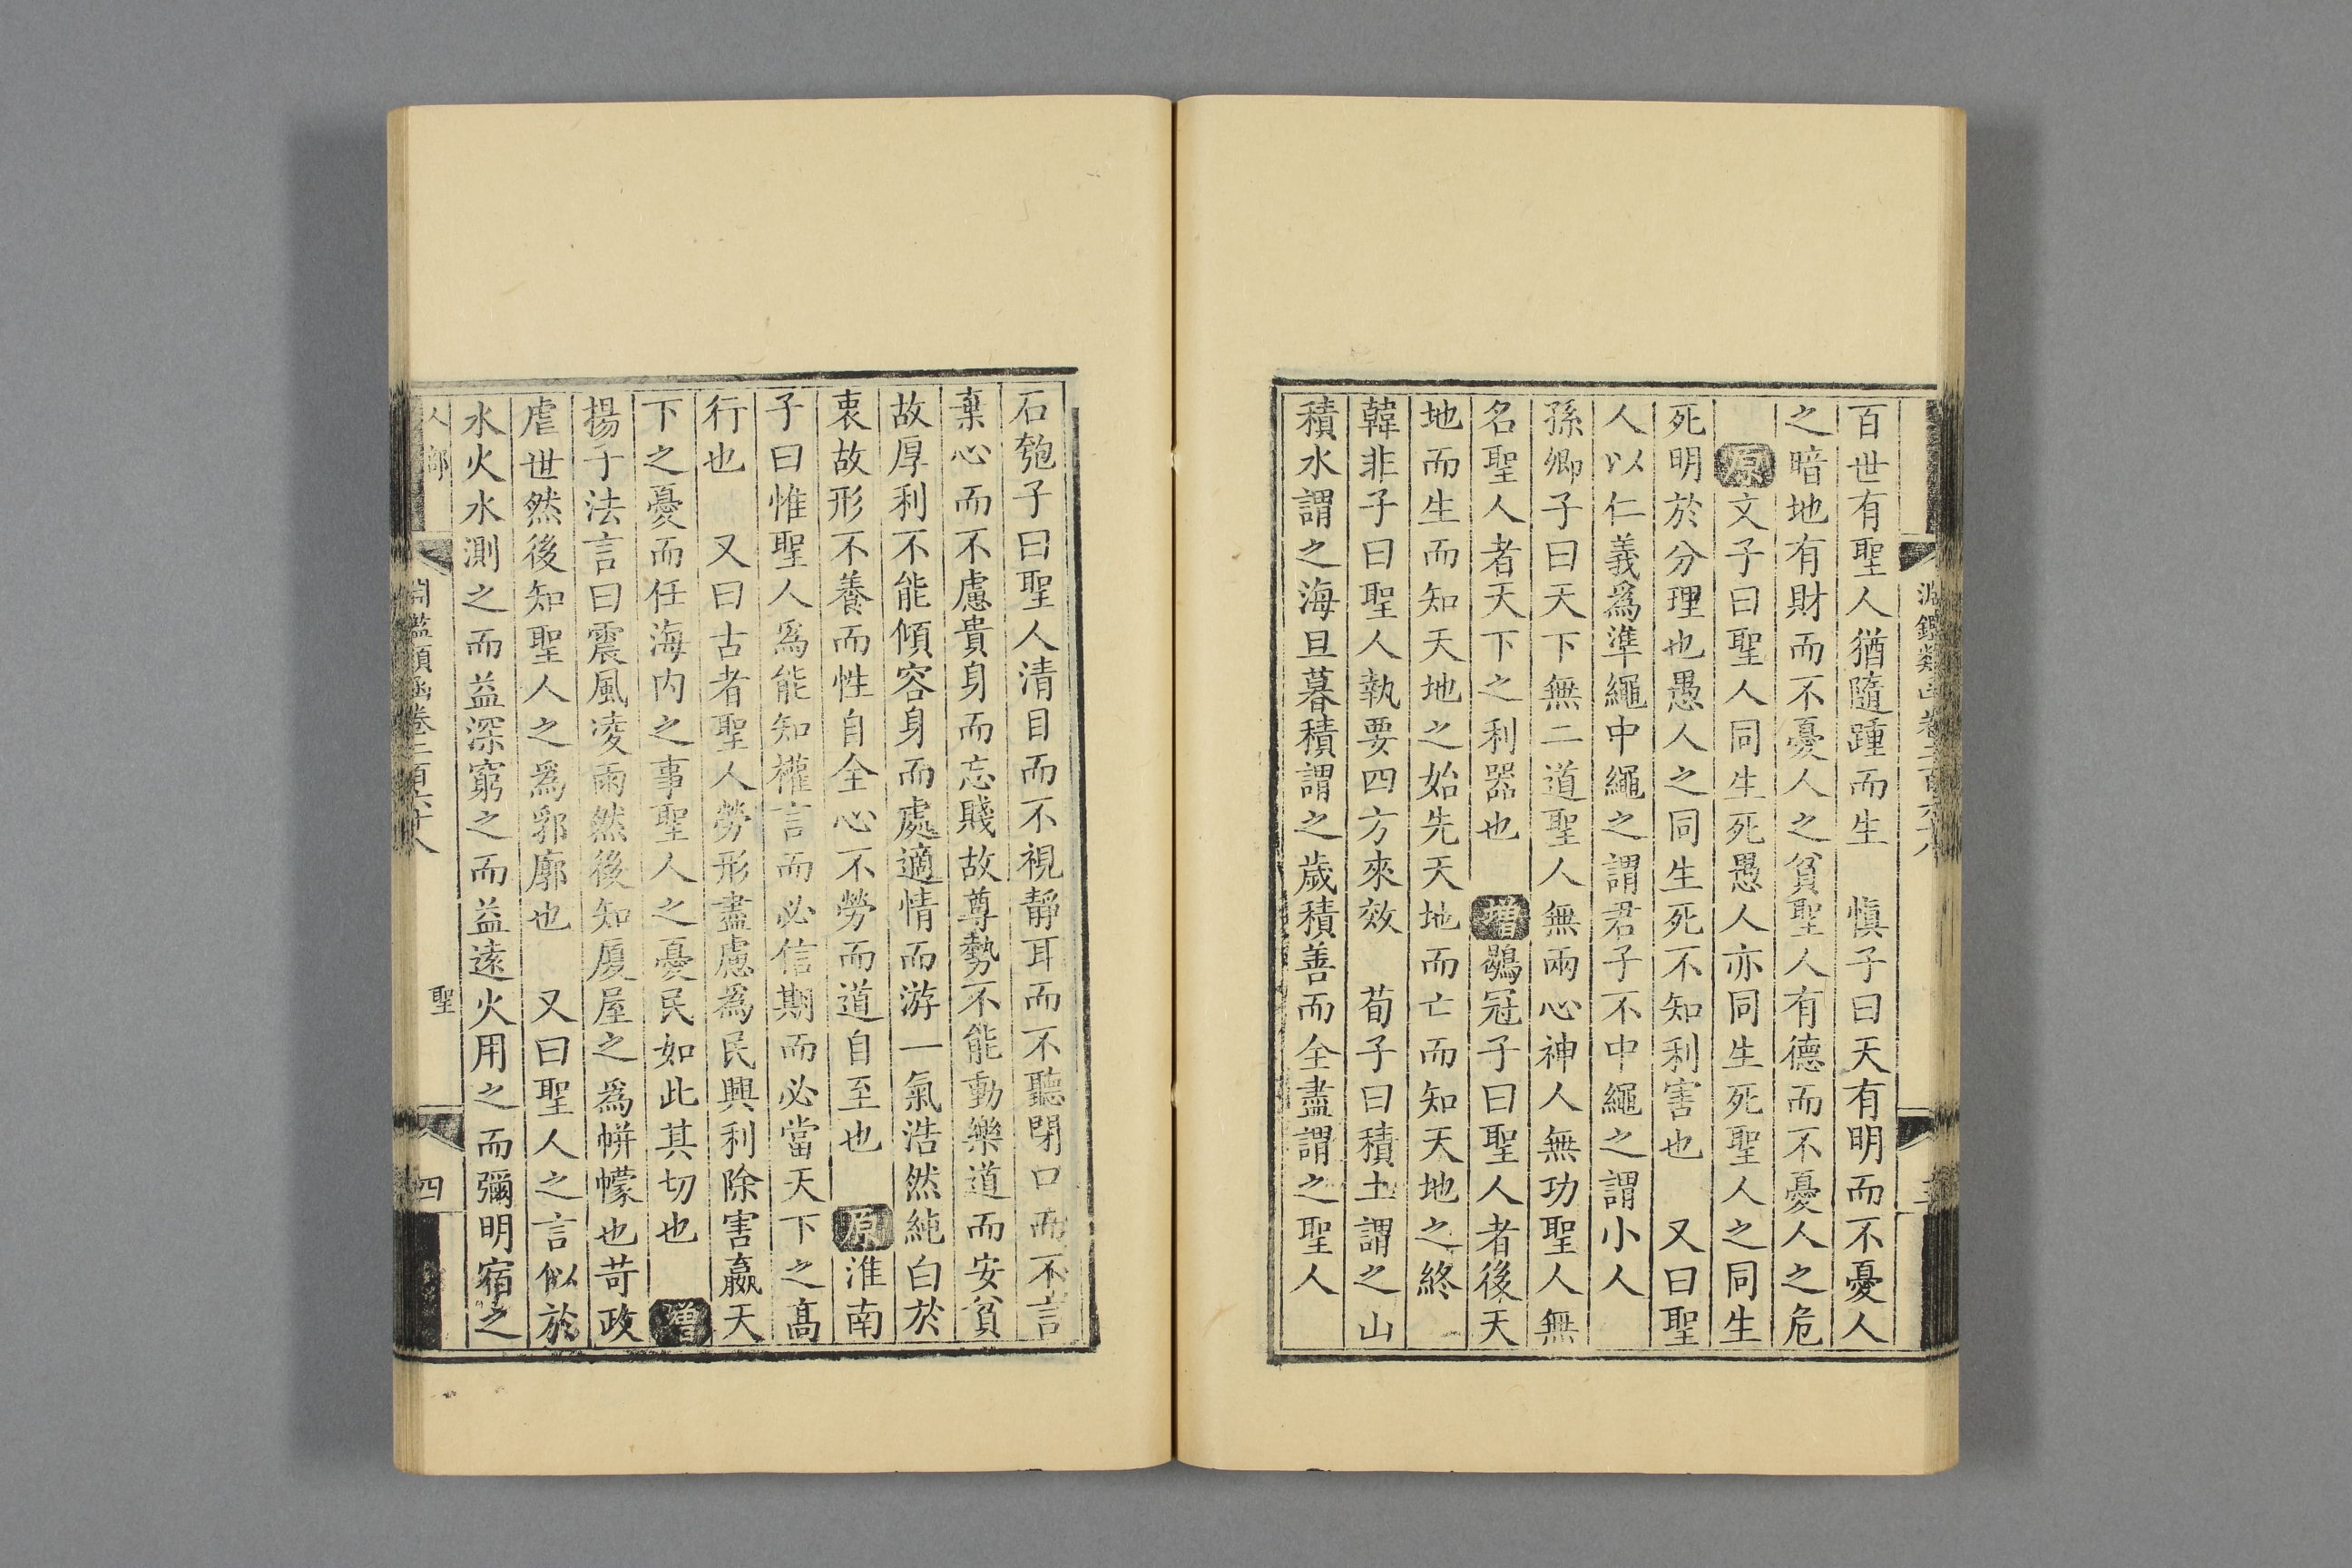 百世有聖人猶隨踵而生　愼子曰天有明而不憂人
之暗地有財而不憂人之貧聖人有德而不憂人之危
原文子曰聖人同生死愚人亦同生死聖人之同生
死明於分理也愚人之同生死不知利害也　又曰聖
人以仁義爲準繩中繩之謂君子不中繩之謂小人
孫卿子曰天下無二道聖人無兩心神人無功聖人無
名聖人者天下之利器也　增鶡冠子曰聖人者後天
地而生而知天地之始先天地而亡而知天地之終
韓非子曰聖人執要四方來效　荀子曰積土謂之山
積水謂之海旦暮積謂之歲積善而全盡謂之聖人
石匏子曰聖人清目而不視靜耳而不聽閉口而不言
棄心而不慮貴身而忘賤故尊勢不能動樂道而安貧
故厚利不能傾容身而處適情而游一氣浩然純白於
衷故形不養而性自全心不勞而道自至也　原淮南
子曰惟聖人爲能知權言而必信期而必當天下之高
行也　又曰古者聖人勞形盡慮爲民興利除害嬴天
下之憂而任海内之事聖人之憂民如此其切也　增
揚子法言曰震風凌雨然後知厦屋之爲帡幪也苛政
虐世然後知聖人之爲郛廓也　又曰聖人之言似於
水火水測之而益深窮之而益遠火用之而彌明宿之
人部　鑑類函卷二百六十八　聖　四